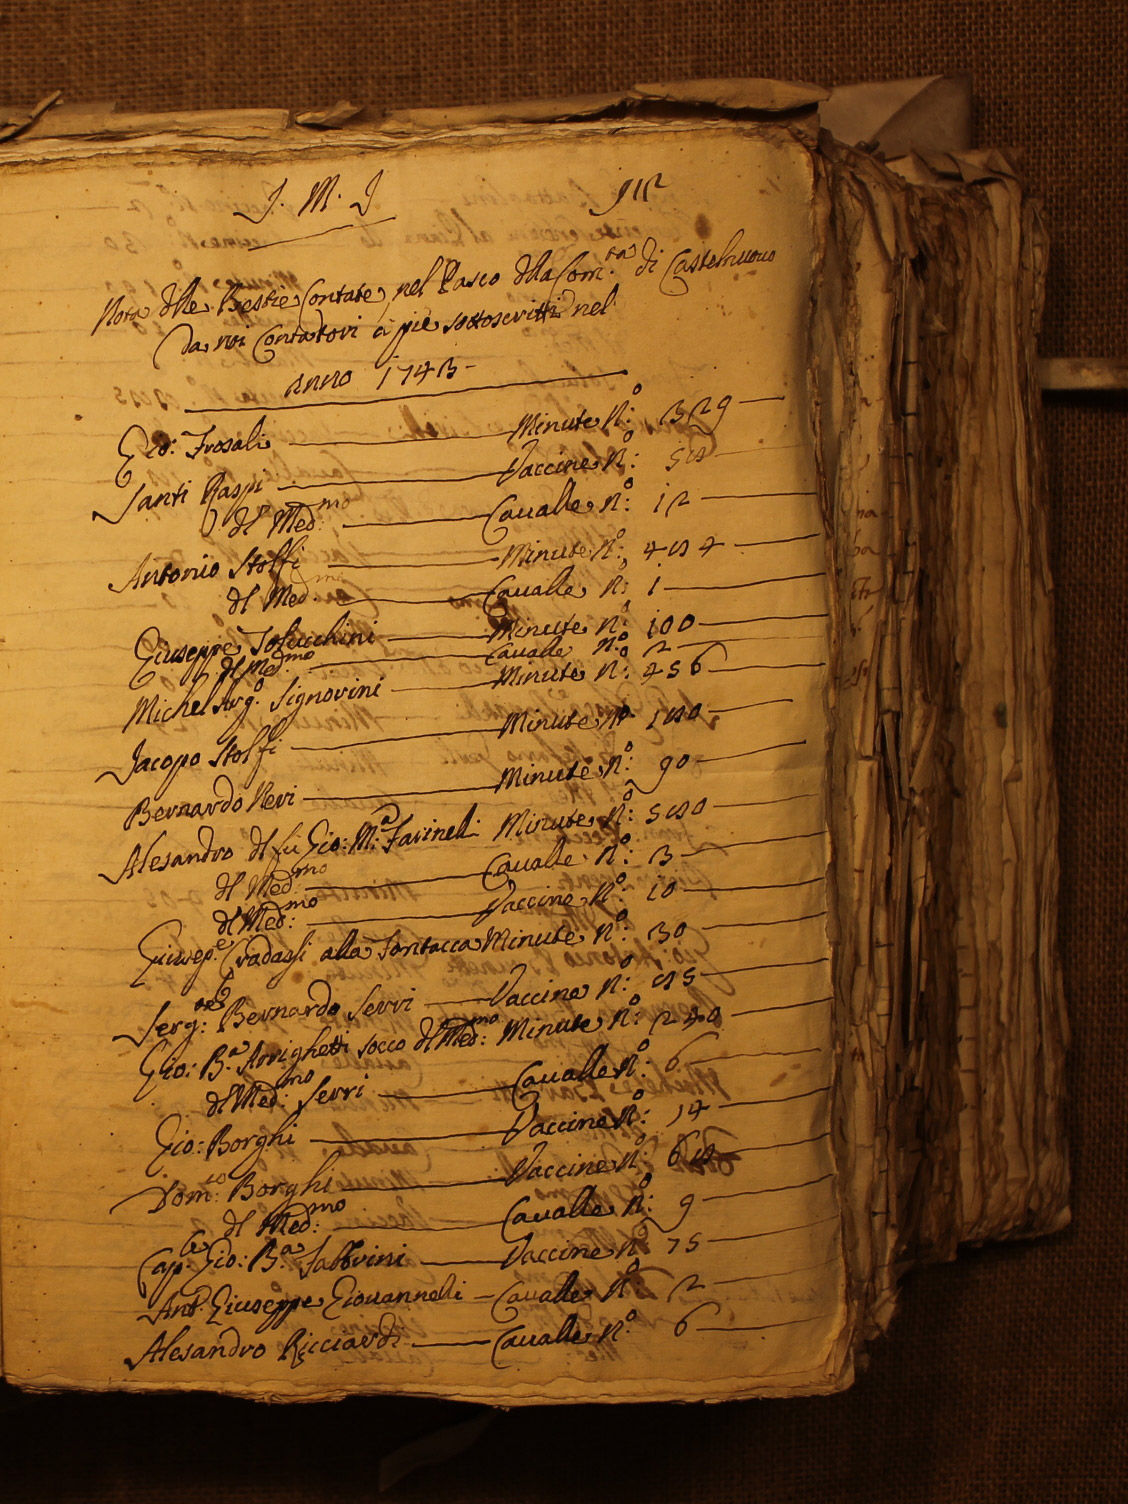 J. M. J
912
Nota dlle Bestie Contate, nel Pasco dlla Com.ta di Castelnuovo
da noi Contatori a piè sottoscritti nel
Anno 1743-
Gio: Frosali Minute N.o: 329
Santi Raspi Vaccine N.o:
dl Med.mo Cavalle N.o: 12
Antonio Stolfi Minute N.o:
dl Med.mo Cavalle N.o: 1
Giuseppe Minute N.o: 100
dl Med.mo Cavalle N.o: 2
Michel Arg.o Signorini Minute N.o: 456
Jacopo Stolfi Minute N.o
Bernardo Neri Minute N.o: 90
Alesandro dl fù Gio: M.a Farinelli Minute N.o:
dl Med.mo Cavalle N.o: 3
dl Med.mo: Vaccine N.o: 10
Giusep.e alla Minute N.o: 30
Serg.te: Bernardo Serri Vaccine N.o:
Gio: B.a Arrighetti socco dl Med.mo: Minute N.o: 240
dl Med.mo Serri Cavalle N.o: 6
Gio: Borghi Vaccine N.o: 14
Dom.co: Borghi Vaccine N.o:
dl Med.mo: Cavalle N.o: 9
Gio: B.a Vaccine N.o: 75
Ant.o Giuseppe Giovannelli Cavalle N.o: 2
Alesandro Ricciardi Cavalle N.o: 6